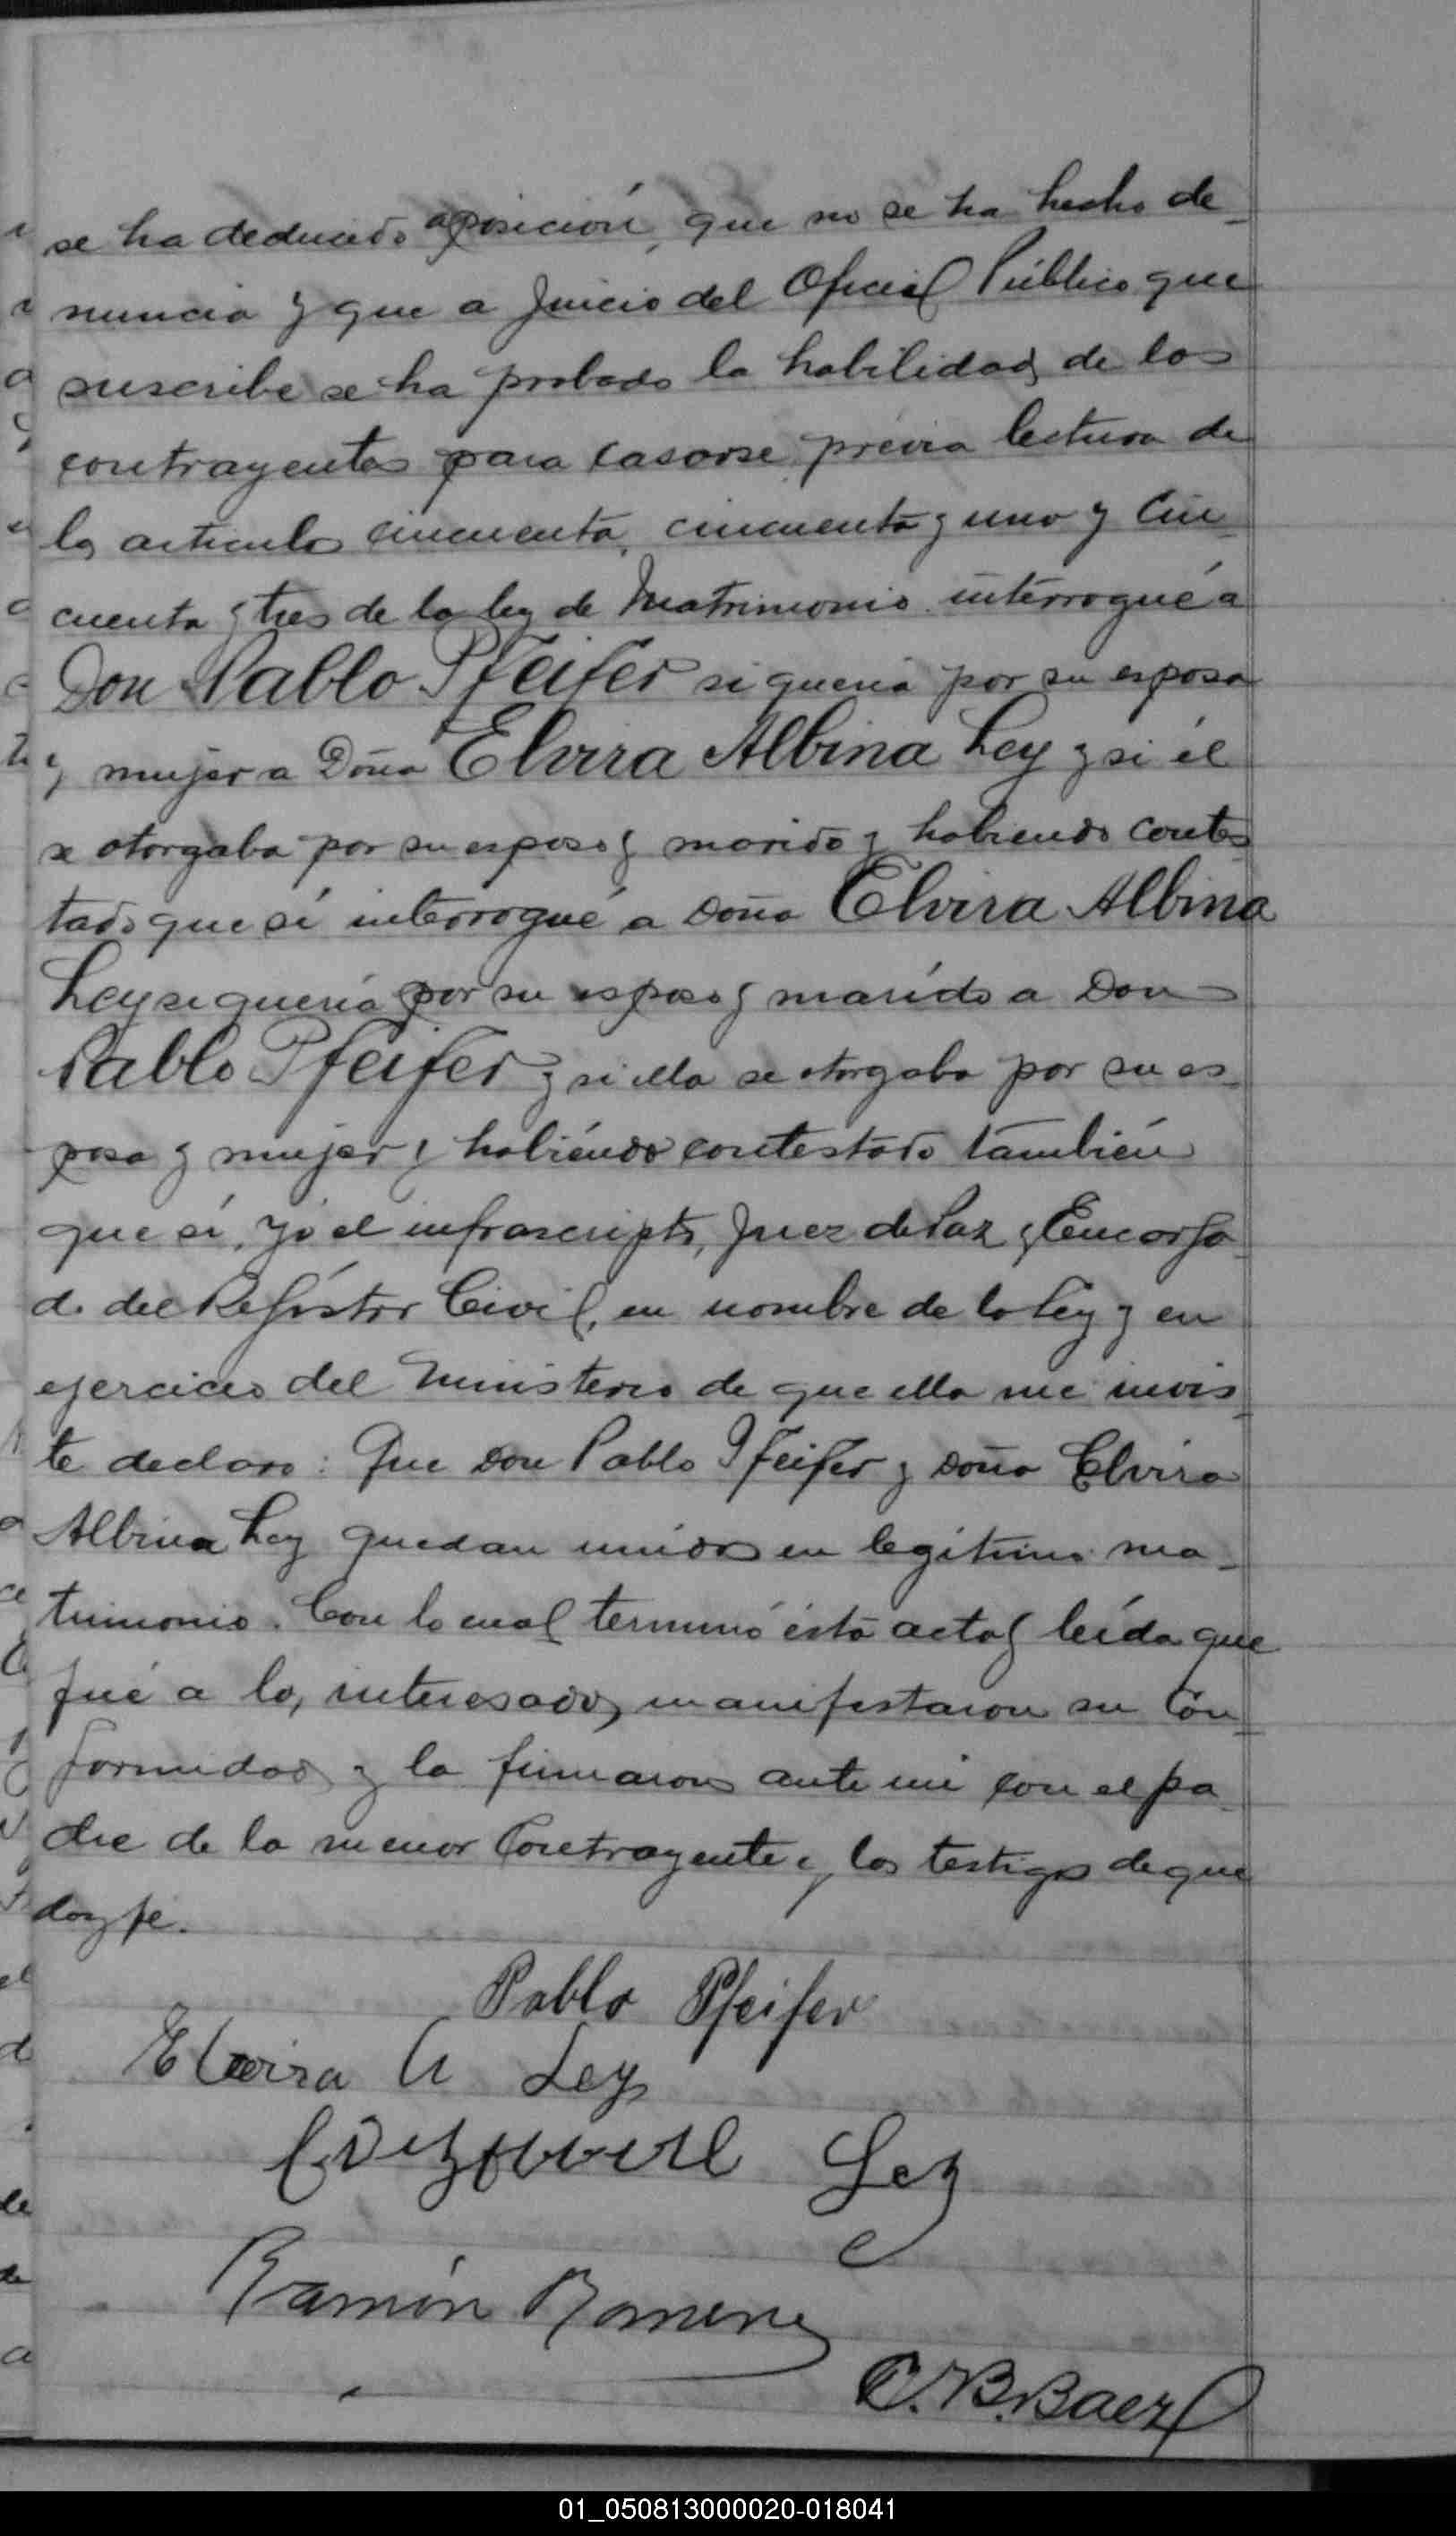 se ha deducido oposición, que no se ha hecho de-
nuncia y que a Juicio del Oficial Público que
suscribe se ha probado la habilidad de los
contrayentes para casarse, previa lectura de
los articulos cincuenta, cincuenta y uno y Cin-
cuenta y tres de la ley de Matrimonio interrogué a
Don Pablo Pfeifer si queria por su esposa
y mujer a Doña Elvira Albina Ley y si él
se otorgaba por su esposo y marido y habiendo contes-
tado que sí interrogué a Doña Elvira Albina
Ley si quería por su esposo y marído a Don
Pablo Pfeifer y si ella se otorgaba por su es-
posa y mujer y habiéndo contestado también
que sí, yo el infrascripto, Juez de Paz y Encarga-
do del Regístro Civil, en nombre de la Ley y en
ejercicio del Ministerio de que ella me invis-
te declaro: Que Don Pablo Pfeifer y Doña Elvira
Albina Ley quedan unidos en legítimo ma-
trimonio. Con lo cual terminó ésta acta y leída que
fué a los interesados, manifestaron su Con-
formidad y la firmaron ante mi con el pa-
dre de la menor Contrayente y los testigos de que
doy fé.
Pablo Pfeifer
Elvira A Ley
Ley
Ramón Romero
C. B. Baez
01_050813000020-018041